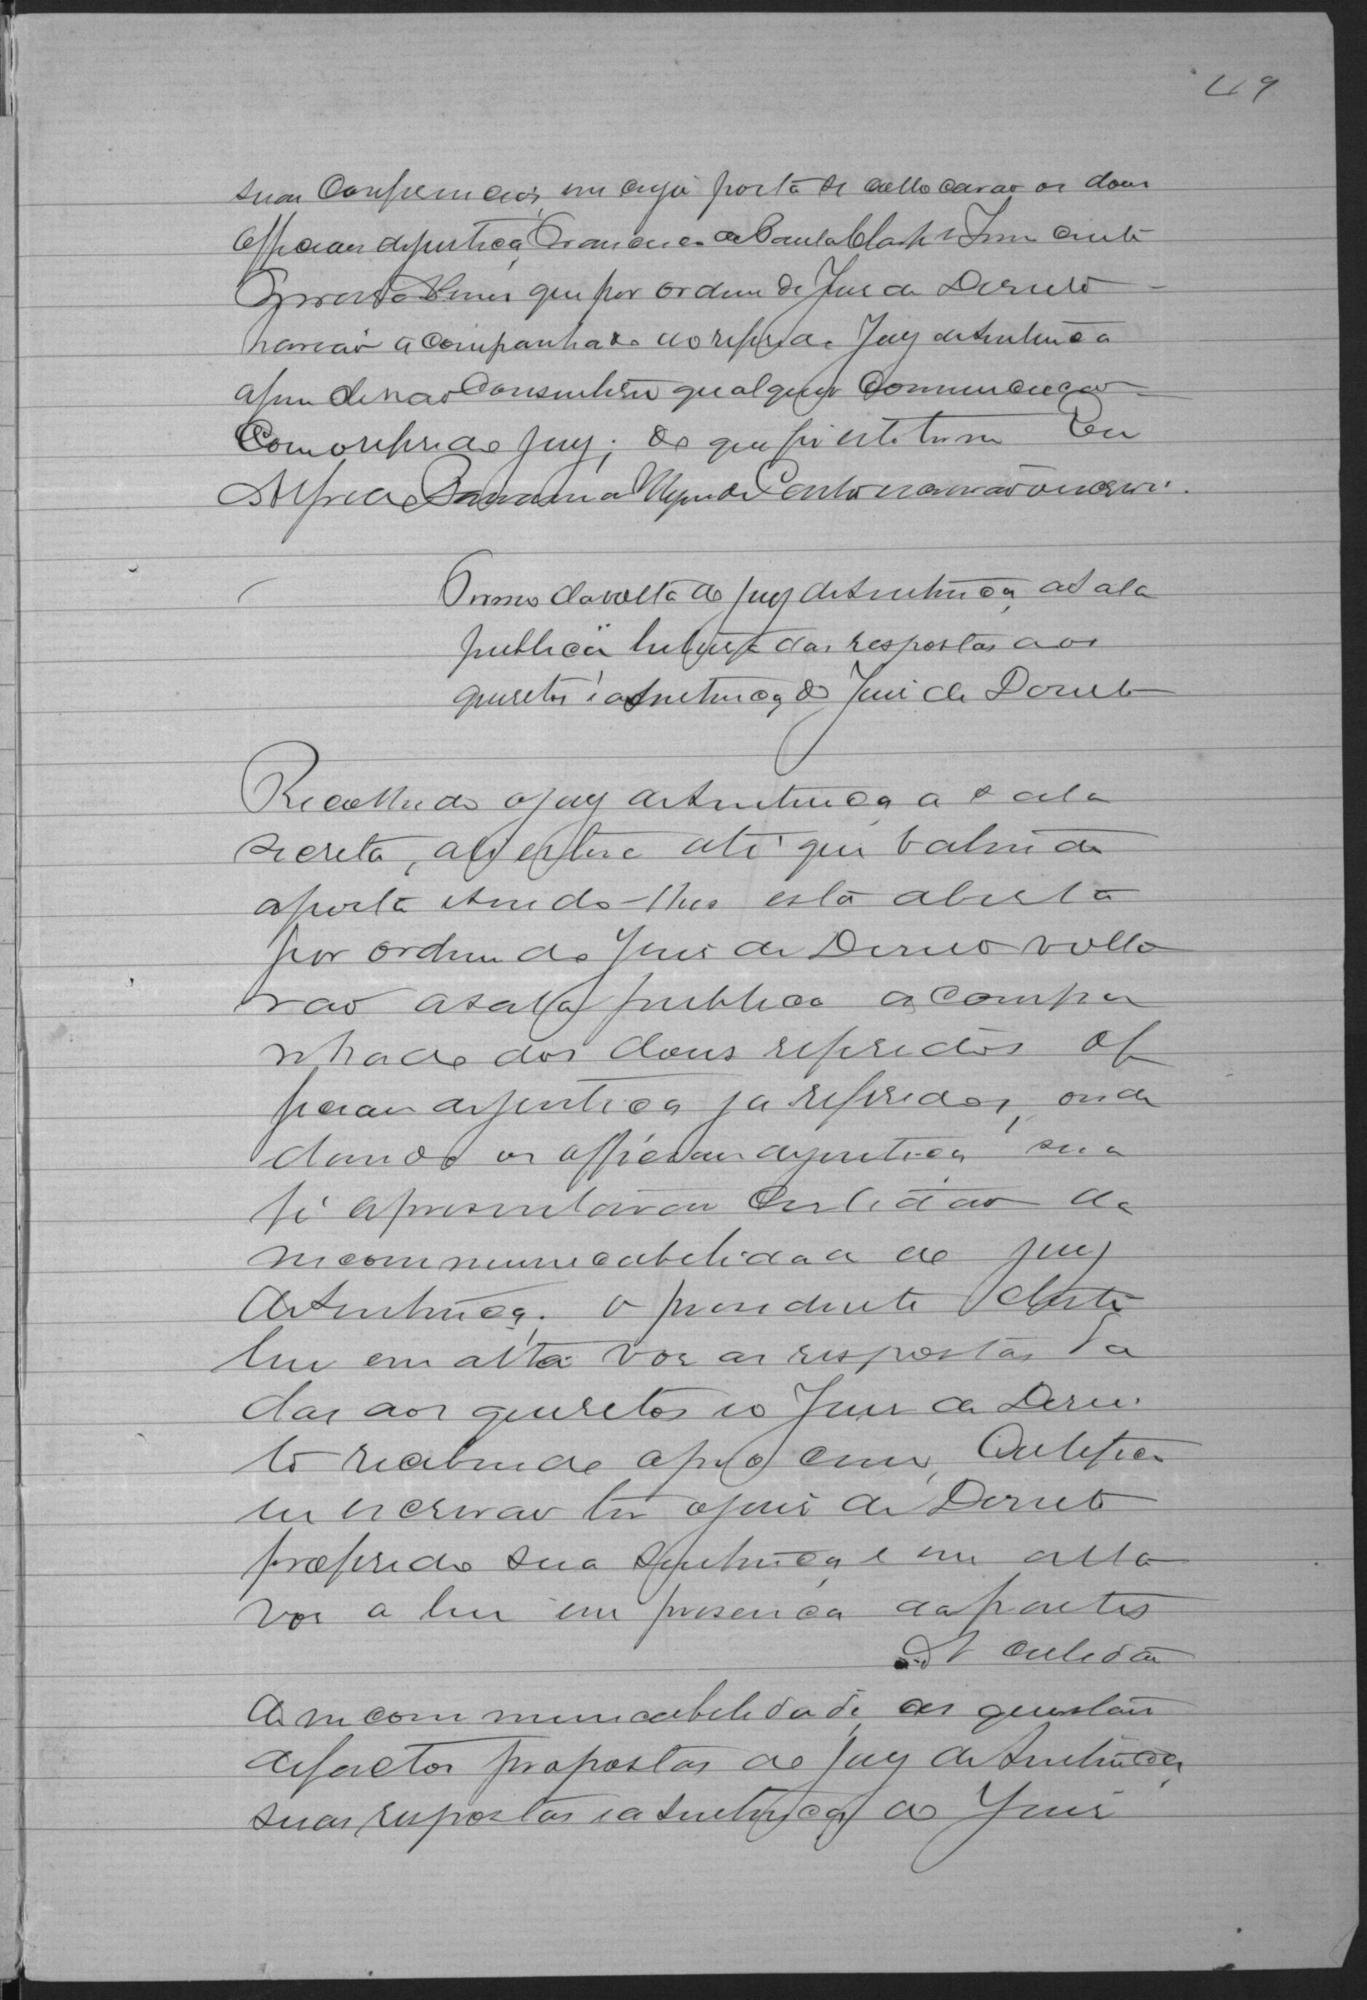 49
suas conferencias, em cuja porta se collocarão os dous
officiaes de justiça, Francisco de Paula
que por ordem do Juis de Direito
havião acompanhado ao referido Jury de Sentença
afim de não consentirem qualquer communicação
com o referido jury; do que fis este termo Eu
Alfredo escrivão o escrevi.
Termo da volta do jury de Sentença, a Sala
publica leitura das respostas aos
quisitos e a Sentença do Juis de Direito
Recolhido o jury de Sentença a sala
secreta, ahi esteve até que batendo
a porta sendo-lhes esta aberta
por ordem do Juis de Direito volta
rão a sala publica acompa
nhado dos dous referidos of
ficiaes de justiça ja referidos, onde
dando os officiaes de justiça sua
fé apresentarão certidão da
incommunicabelidade do jury
de Sentença. o presidente deste
leu em alta vos as respostas da
das aos quisitos e o Juis de Direi
to recebendo o
escrivão ter o juis de Direito
proferido sua sentença e em alta
vos a leu em presença das partes
A certidão
de incommunicabelidade, as questões
de factos propostas ao jury de Sentença,
suas respostas e a sentença do Juis